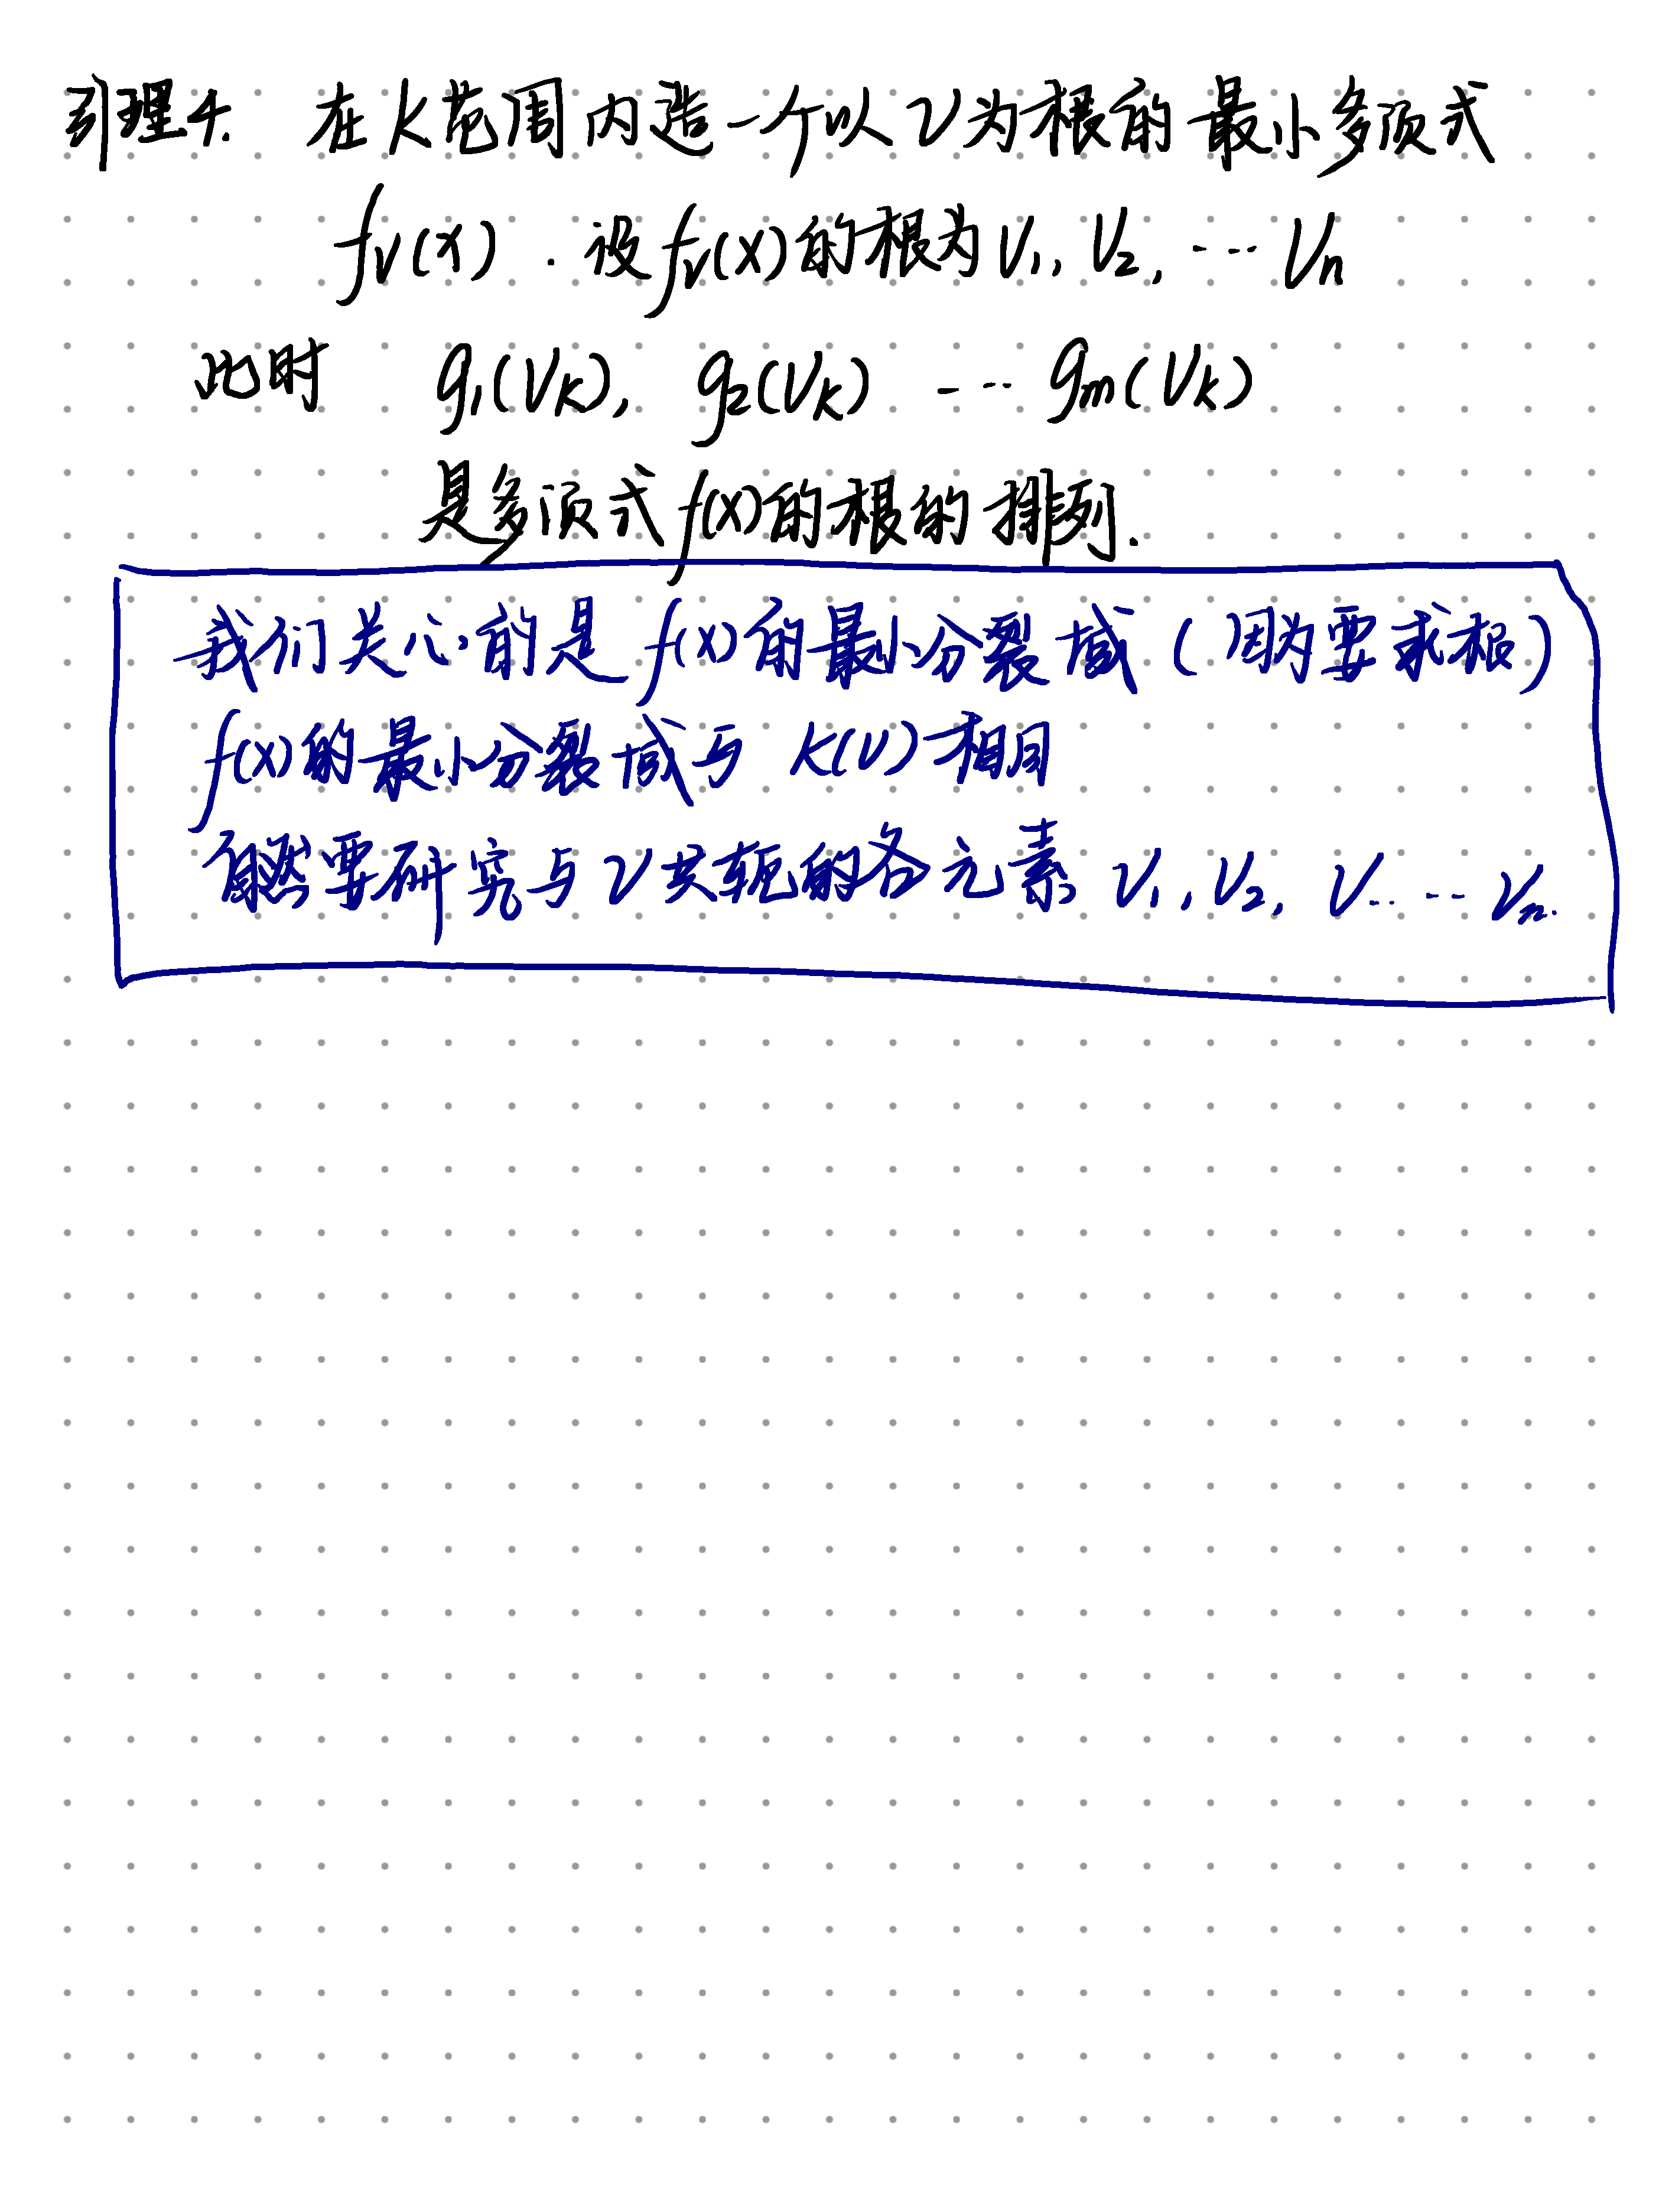 引理4. 在K范围内造一个以V为根的最小多项式
fv(x). 设fv(x)的根为V1, V2, ... Vn
此时 g1(Vk), g2(Vk) ... gm(Vk)
是多项式f(x)的根的排列.
我们关心的是f(x)的最小分裂域(因为要求根)
f(x)的最小分裂域与K(V)相同
自然要研究与V共轭的各元素V1, V2, V... ... Vn.